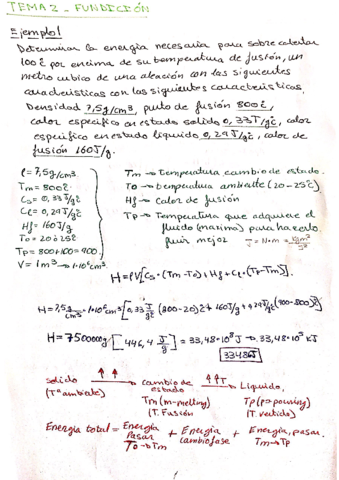 TEMA 2 - FUNDICIÓN
Ejemplo 1
Determinar la energía necesaria para sobrecalentar
100 ºC por encima de su temperatura de fusión, un
metro cubico de una aleación con las siguientes
características con las siguientes características.
Densidad 7,5g/cm³, punto de fusión 800ºC,
calor específico en estado solido 0,33J/gºC, calor
específico en estado líquido 0,29J/gºC, calor de
fusión 160J/g.
ρ = 7,5g/cm³
Tm = 800ºC
Cs = 0,33J/gºC
Cℓ = 0,29J/gºC
Hf = 160J/g
To = 20 ó 25ºC
Tp = 800+100 = 900
V = 1m³ → 1·10⁶cm³
Tm → Temperatura cambio de estado.
To → temperatura ambiente (20-25ºC)
Hf → Calor de fusión
Tp → Temperatura que adquiere el
fluido (maxima) para hacerlo
fluir mejor J = N·m =
H = ρV[Cs·(Tm-To)+Hf+Cℓ·(Tp-Tm)].
H = 7,5 g/cm³ · 1·10⁶cm³ [0,33 J/gºC (800-20)ºC + 160J/g + 0,29 J/gºC (900-800)ºC]
H = 7500000g [446,4 J/g] = 33,48·10⁸ J → 33,48·10⁵ KJ
3348MJ
solido → cambio de estado → Líquido.
(Tª ambiente) Tm (m-melting) Tp (p=pouring)
(T. Fusión) (T. vertido)
Energía total = Energía pasar To→Tm + Energía cambio fase + Energía pasar. Tm→Tp